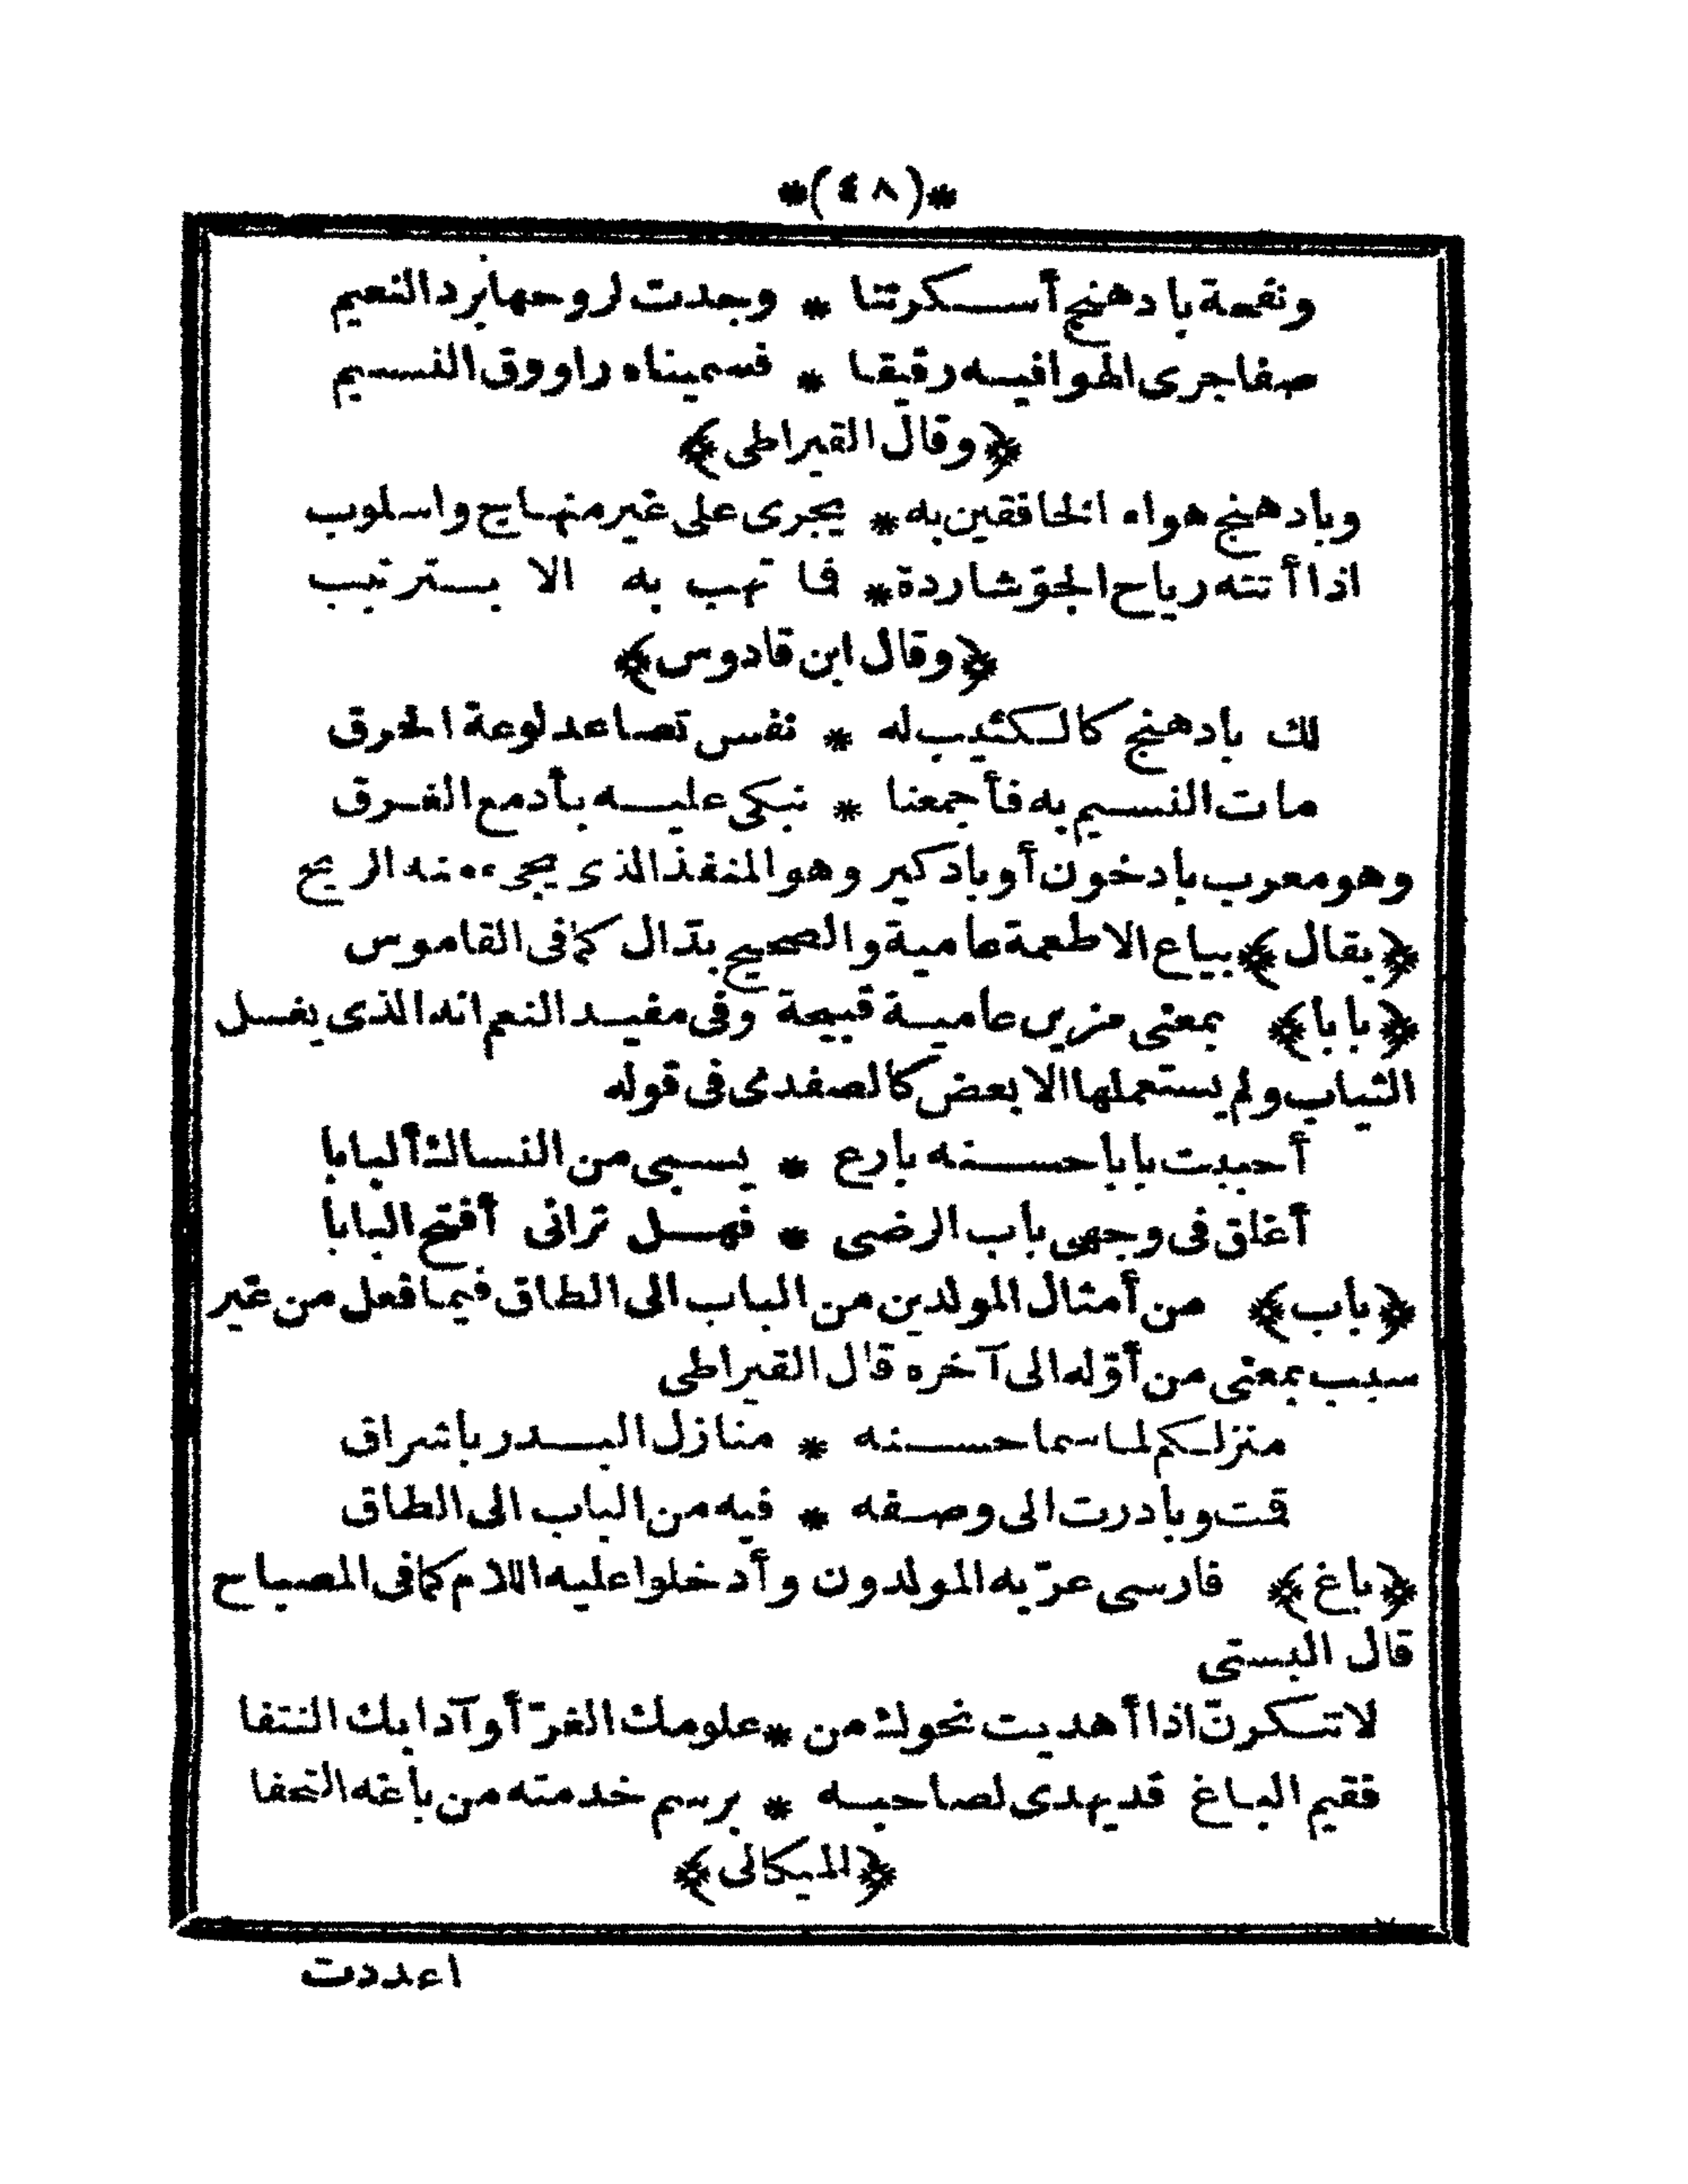 *(٤٨)*
ونفحة بادهنج أسكرتنا * وجدت لروحها برد النعيم
صفا جرى الهوا فيه رقيقا * فسميناه راووق النسيم
﴿وقال القيراطى﴾
وبادهنج هواء الخافقين به * يجرى على غير منهاج واسلوب
اذا أتته رياح الجوّ شاردة * فما تهب به الا بترتيب
﴿وقال ابن قادوس﴾
لك بادهنج كالكئيب له * نفس تصاعد لوعة الحرق
مات النسيم به فأجمعنا * نبكى عليه بأدمع الغرق
وهو معرب بادخون أو بادكير وهو المنفذ الذى يجىء منه الريح
﴿بقال﴾ بياع الاطعمة عامية والصحيح بدّال كما فى القاموس
﴿بابا﴾ بمعنى مزين عامية قبيحة وفى مفيد النعم انه الذى يغسل
الثياب ولم يستعملها الا بعض كالصفدى فى قوله
أحببت بابا حسنه بارع * يسبى من النساك ألبابا
أغلق فى وجهى باب الرضى * فهل ترانى أفتح البابا
﴿باب﴾ من أمثال المولدين من الباب الى الطاق فيما فعل من غير
سبب بمعنى من أوّله الى آخره قال القيراطى
منزلكم لما سما حسنه * منازل البدر باشراق
قمت وبادرت الى وصفه * فيه من الباب الى الطاق
﴿باغ﴾ فارسى عرّبه المولدون وأدخلوا عليه اللام كما فى المصباح
قال البستى
لا تنكرنّ اذا أهديت نحوك من * علومك الغرّ أو آدابك النتفا
فقيم الباغ قد يهدى لصاحبه * برسم خدمته من باغه التحفا
﴿للميكالى﴾
اعددت